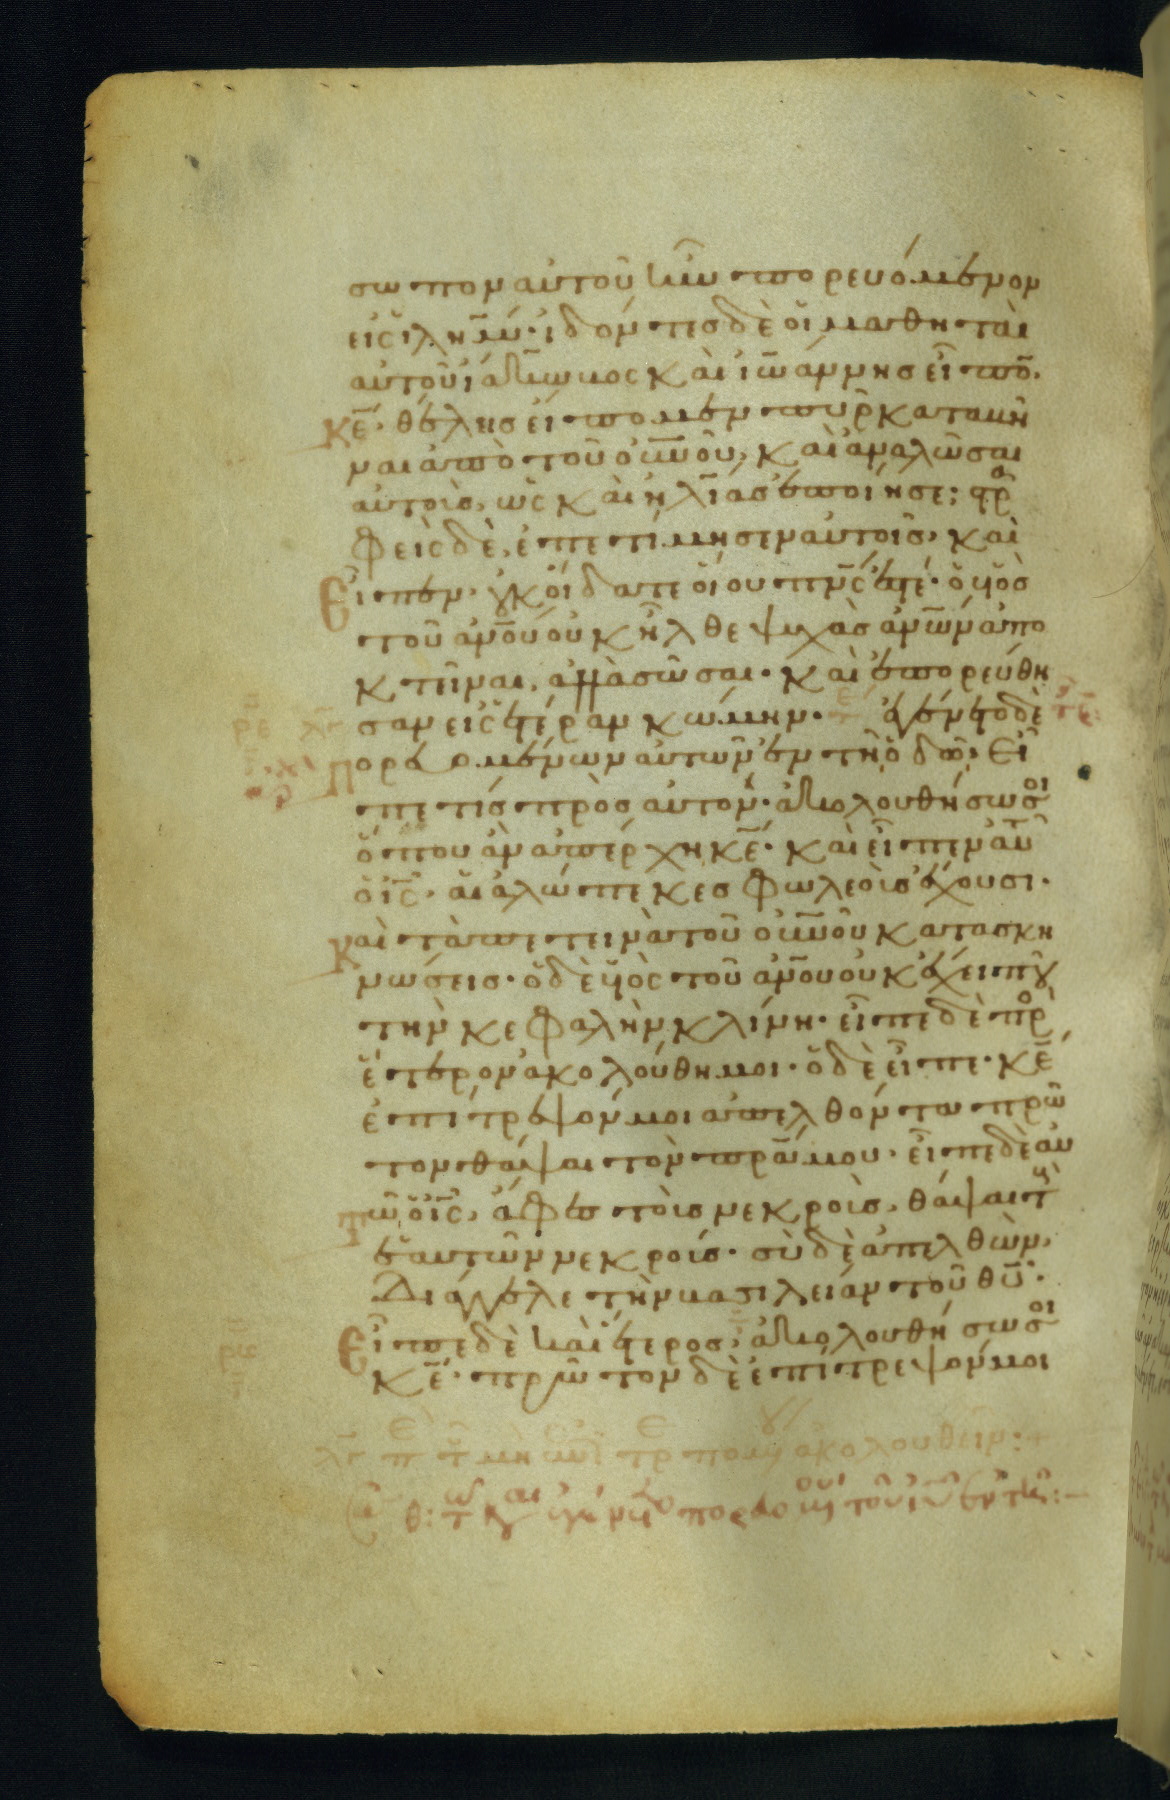 σωπον αὐτοῦ ἦν πορευόμενον
εἰς ἰλημ̄· ἰδόντες δὲ οἱ μαθηταὶ
αὐτοῦ ἰάκωβος καὶ ἰω̄άννης εἶπο̄·
κε̄· θέλης εἴπομεν πῦρ καταβῆ
ναι ἀπὸ τοῦ οὐν̄οῦ, καὶ ἀναλῶσαι
αὐτοὺς, ὡς καὶ ἠλίας ἐποίησε;
φεὶς δὲ, ἐπετίμησεν αὐτοῖς, καὶ
εἶπεν, οὐκ οἴδατε οἵου πν̄ς ἐστέ· ὁ υἱὸς
τοῦ ἀν̄ου οὐκ ἦλθε ψυχὰς ἀν̄ων ἀπο
κτεῖναι, ἀλλὰ σῶσαι· καὶ ἐπορεύθη
σαν εἰς ἑτέραν κώμην· ἐγένετο δὲ
πορευομένων αὐτῶν ἐν τῆ ὁδῶ, εἶ
πέ τις πρὸς αὐτόν· ἀκολουθήσω σοι
ὅπου ἂν ἀπέρχη κε̄· καὶ εἶπεν αὐτ
ὁ ις̄· αἱ ἀλώπεκες φωλεοὺς ἔχουσι·
καὶ τὰ πετεινὰ τοῦ οὐν̄οῦ κατασκη
νώσεις· ὁ δὲ υἱὸς τοῦ ἀν̄ου οὐκ ἔχει ποῦ
τὴν κεφαλὴν κλίνη· εἶπε δὲ πρὸ
ἕτερον ἀκολούθη μοι· ὁ δὲ εἶπε· κε̄
ἐπίτρεψόν μοι ἀπελθόντα πρῶ
τον θάψαι τὸν πρ̄α μου· εἶπε δὲ αὐ
τῶ ὁ ις̄, ἄφες τοὺς νεκροὺς, θάψαι τοὺ
ς ἑαυτῶν νεκρούς· σὺ δὲ ἀπελθὼν,
διάγγελε τὴν βασιλείαν τοῦ θῡ·
εἶπε δὲ καὶ ἕτερος, ἀκολουθήσω σοι
κε̄· πρῶτον δὲ ἐπίτρεψόν μοι